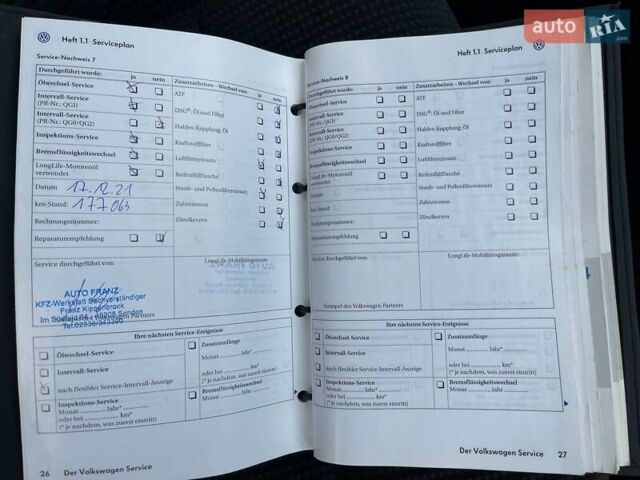 auto RIA .com
Heft 1.1 Serviceplan
Service-Nachweis 7
Durchgeführt wurde: ja nein Zusatzarbeiten - Wechsel von: ja nein
Ölwechsel-Service
ATF
Intervall-Service
(PR-Nr.: QG1)
DSG®: Öl und Filter
Intervall-Service
(PR-Nr.: QG0/QG2)
Haldex-Kupplung: Öl
Inspektions-Service
Kraftstofffilter
Bremsflüssigkeitswechsel
Luftfiltereinsatz
LongLife-Motorenöl
verwendet
Reifenfüllflasche
Datum 17.12.21
Staub- und Pollenfiltereinsatz
km-Stand: 177063
Zahnriemen
Rechnungsnummer:
Zündkerzen
Reparaturempfehlung
Service durchgeführt von:
LongLife-Mobilitätsgarantie
AUTO FRANZ
KFZ-Werkstatt Sachverständiger
Franz Kippenbrock
Im Südfeld 64 48308 Senden
Tel.
AUTO FRANZ
Ihre nächsten Service-Ereignisse
Ölwechsel-Service
Intervall-Service
nach flexibler Service-Intervall-Anzeige
Inspektions-Service
Monat Jahr*
oder bei km*
(* je nachdem, was zuerst eintritt)
Zusatzumfänge
Monat Jahr*
oder bei km*
(* je nachdem, was zuerst eintritt)
Bremsflüssigkeitswechsel
Monat Jahr
26 Der Volkswagen Service
Heft 1.1 Serviceplan
Service-Nachweis 8
Durchgeführt wurde: ja nein Zusatzarbeiten - Wechsel von: ja nein
Ölwechsel-Service
ATF
Intervall-Service
(PR-Nr.: QG1)
DSG®: Öl und Filter
Intervall-Service
(PR-Nr.: QG0/QG2)
Haldex-Kupplung: Öl
Inspektions-Service
Kraftstofffilter
Bremsflüssigkeitswechsel
Luftfiltereinsatz
LongLife-Motorenöl
verwendet
Reifenfüllflasche
Datum
Staub- und Pollenfiltereinsatz
km-Stand:
Zahnriemen
Rechnungsnummer:
Zündkerzen
Reparaturempfehlung
Service durchgeführt von:
LongLife-Mobilitätsgarantie
Stempel des Volkswagen Partners
Ihre nächsten Service-Ereignisse
Ölwechsel-Service
Intervall-Service
nach flexibler Service-Intervall-Anzeige
Inspektions-Service
Monat Jahr*
oder bei km*
(* je nachdem, was zuerst eintritt)
Zusatzumfänge
Monat Jahr*
oder bei km*
(* je nachdem, was zuerst eintritt)
Bremsflüssigkeitswechsel
Monat Jahr
Der Volkswagen Service 27